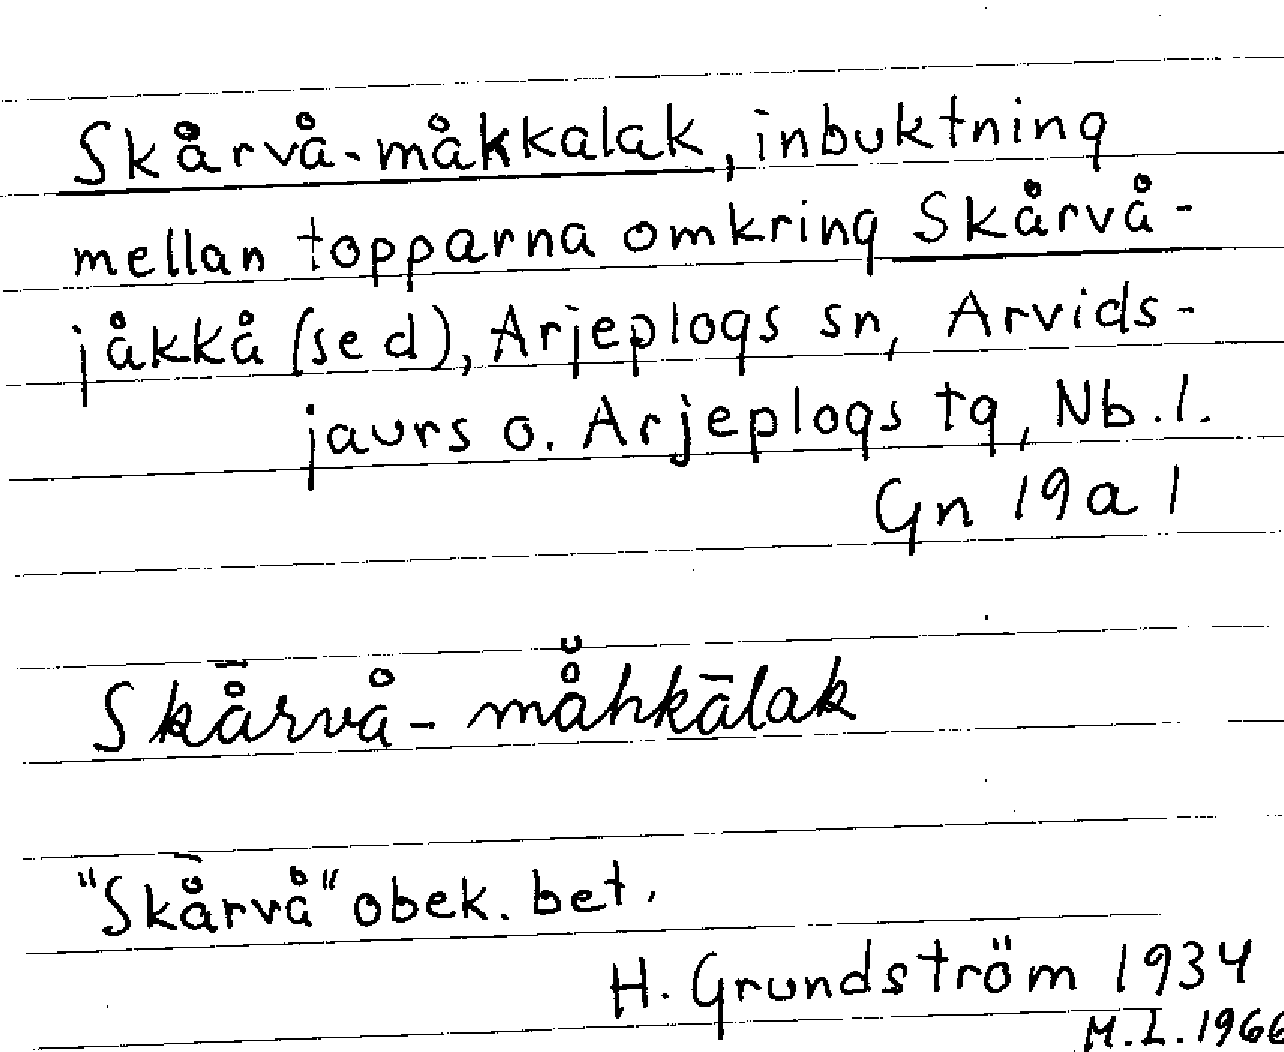 Skårvå-måkkalak, inbuktning
mellan topparna omkring Skårvå-
jåkkå (se d), Arjeplogs sn, Arvids-
jaurs o. Arjeplogs tg, Nb.l.
Gn 19a 1
Skå̄rvå - må̆hkālak
"Skå̄rvå" obek. bet.
H. Grundström 1934
M.L. 1966